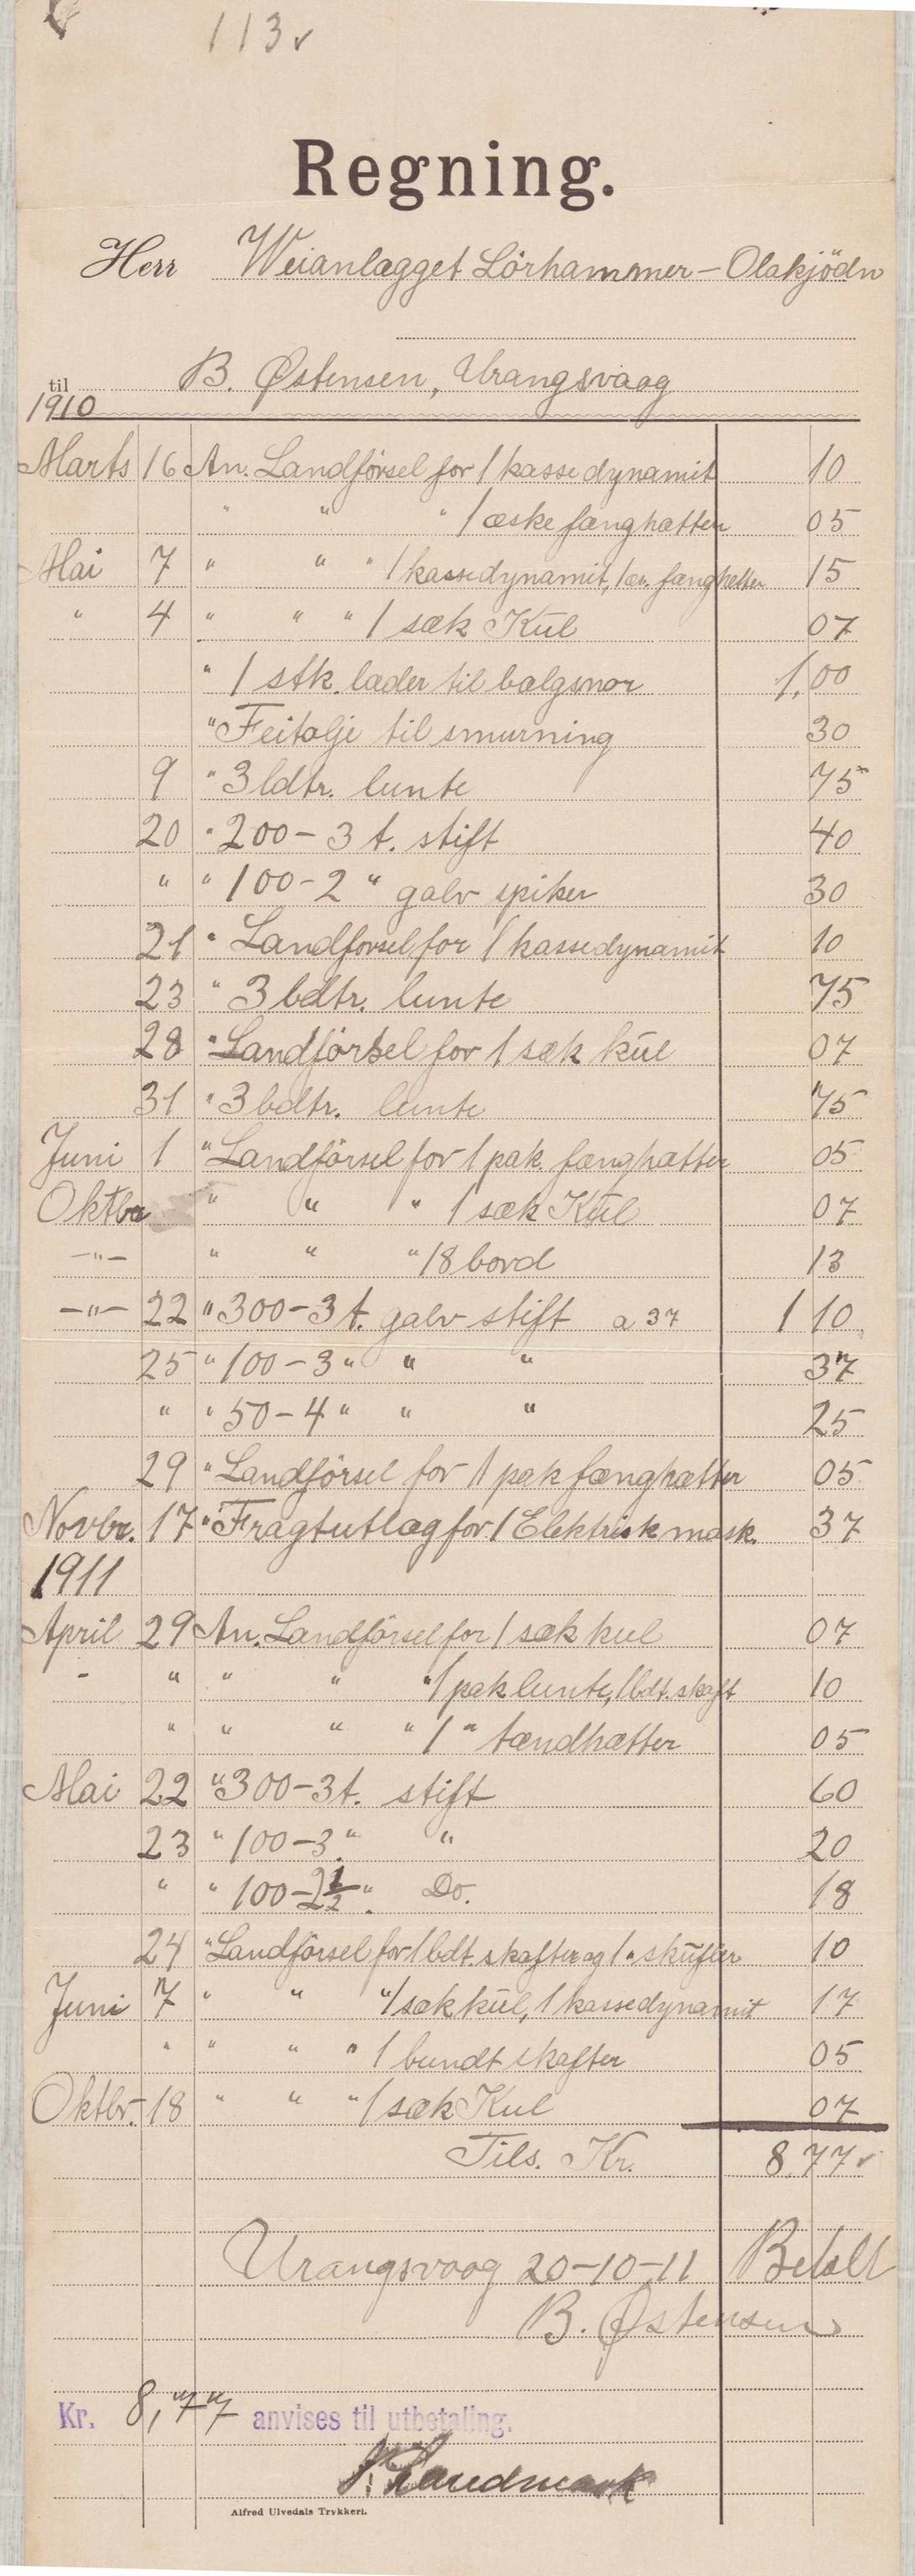 113 ✓
Regning.
Herr Weianlægget Lörhammer - Olakjödn
til B. Østensen, Urangsvaag
1910
Marts 16 An. Landförsel for 1 kasse dynamit 10
" " " 1 æske fænghætter 05
Mai 7 " " " 1 kasse dynamit, 1 æs. fænghætter 15
" 4 " " " 1 sæk Kul 07
" 1 stk. læder til bælgsnor 1,00
" Feitalje til smurning 30
9 " 3 bdtr. lunte 75
20 " 200 - 3 t. stift 40
" " 100 - 2 " galv spiker 30
21 " Landforsel for 1 kasse dynamit 10
23 " 3 bdtr. lunte 75
28 " Landförsel for 1 sæk kul 07
31 " 3 bdtr. lunte 75
Juni 1 " Landförsel for 1 pak. fænghætter 05
Oktbr " " " 1 sæk Kul 07
-"- " " " 18 bord 13
-"- 22 " 300 - 3 t. galv stift a 37 1 10
25 " 100 - 3 " " " 37
" " 50 - 4 " " " 25
29 " Landförsel for 1 pak fænghætter 05
Novbr. 17 " Fragtutlæg for 1 Elektrisk mask. 37
1911
April 29 An. Landförsel for 1 sæk kul 07
- " " " " 1 pak lunte, 1 bdt. skaft 10
" " " " 1 " tændhætter 05
Mai 22 " 300 - 3 t. stift 60
23 " 100 - 3 " " 20
" " 100 - 2 1/2 " Do. 18
24 " Landförsel for 1 bdt. skafter og 1 " skufler 10
Juni 7 " " " 1 sæk kul, 1 kasse dynamit 17
" " " " 1 bundt skafter 05
Oktbr. 18 " " " 1 sæk Kul 07
Tils. Kr. 8,77 ✓
Urangsvaag 20-10-11 Betalt
B. Østensen
Kr. 8,77 anvises til utbetaling.
Landmark
Alfred Ulvedals Trykkeri.